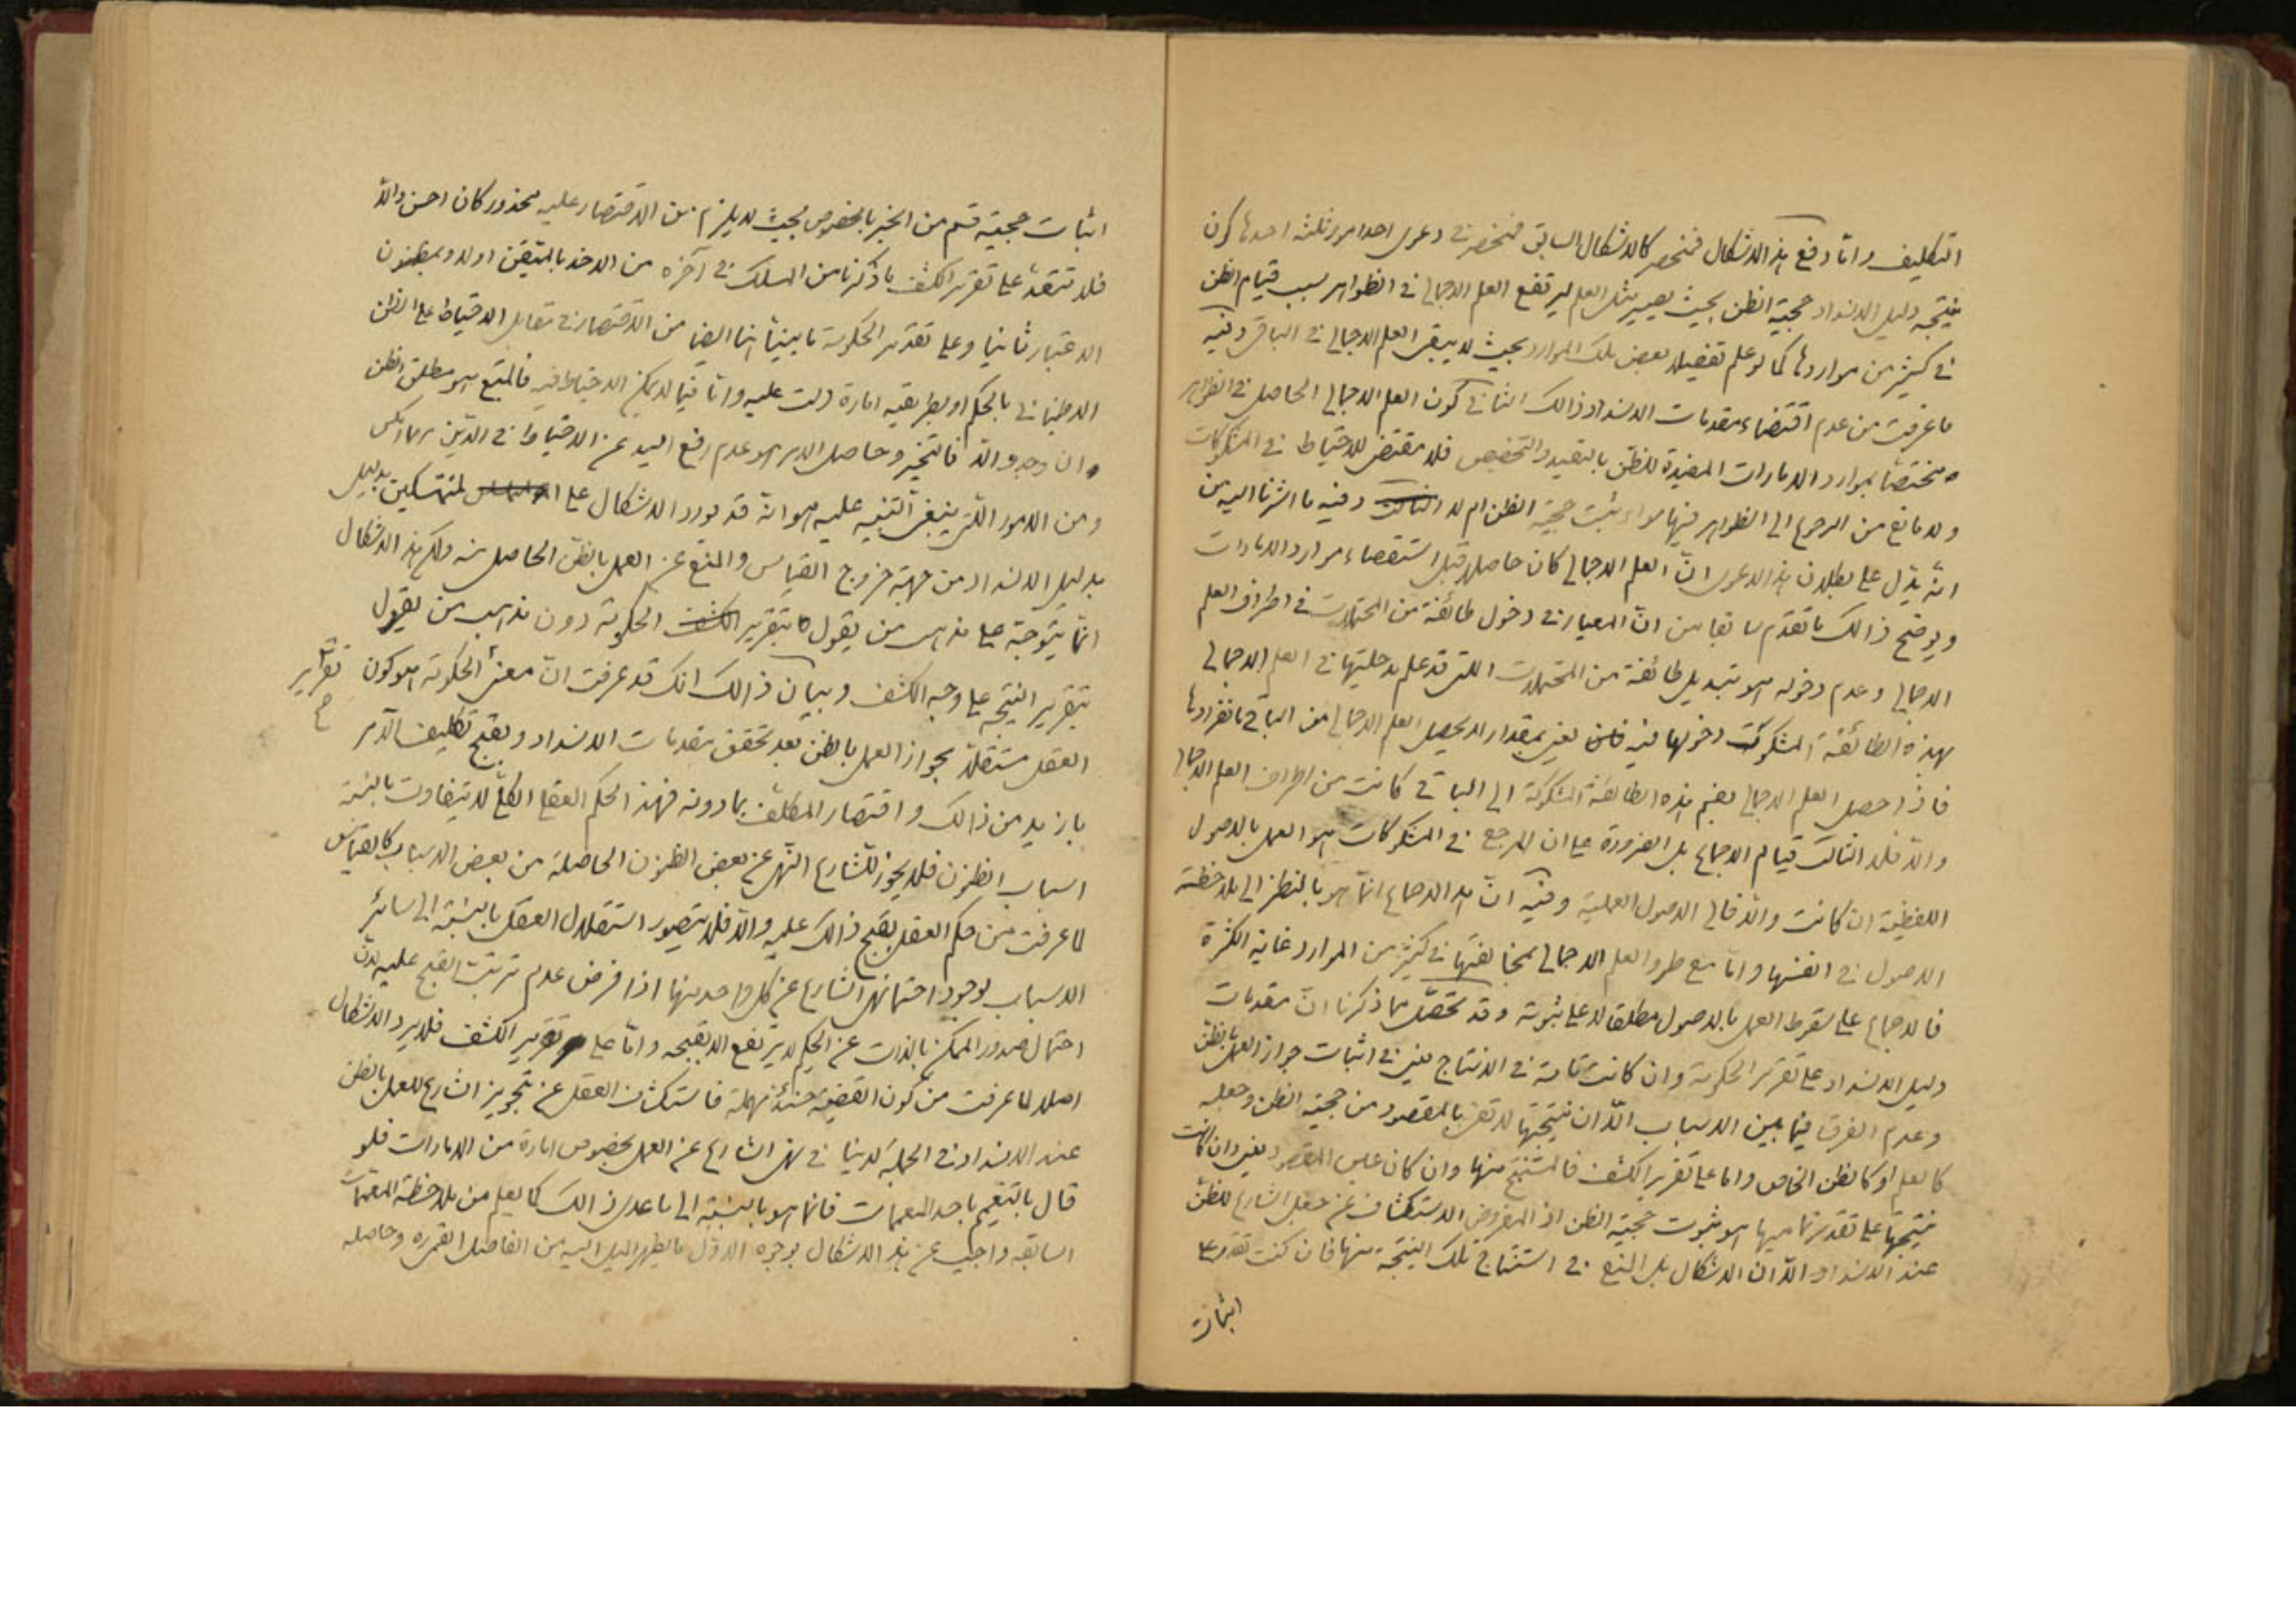 التكليف وامّا دفع هذا الاشكال فنحصر كالاشكال السابق فنحصر فى دعوى احد امور ثلثه احدها كون
نتيجة دليل الانسداد حجية الظن بحيث يصير مثل العلم ليرتفع العلم الاجمالى فى الظواهر بسبب قيام الظن
فى كثير من مواردها كما لو علم تفصيلا بعض تلك الموارد بحيث لا يبقى العلم الاجمالى فى الباقى وفيه
ما عرفت من عدم اقتضاء مقدمات الانسداد ذالك الثانى كون العلم الاجمالى الحاصل فى الظواهر
مختصّا بموارد الامارات المفيدة للظن بالتقييد والتخصيص فلا مقتضى للاحتياط فى المشكوكات
ولا مانع من الرجوع الى الظواهر فيها سواء ثبت حجية الظن ام لا وفيه ما اشرنا اليه من
انّه يدّل على بطلان هذا الدعوى انّ العلم الاجمالى كان حاصلا قبل استقصاء موارد الامارات
ويوضح ذالك ما تقدّم سابقا من انّ المعيار فى دخول طائفة من المحتملات فى اطراف العلم
الاجمالى وعدم دخوله هو تبديل طائفة من المحتملات اللتى قد علم مدخليتها فى العلم الاجمالى
بهذه الطائفة المشكوكت دخولها فيه يعنى بمقدار لا يحصل العلم الاجمالى من الباقى بانفرادها
فاذا حصل العلم الاجمالى بضم هذه الطائفة المشكوكة الى الباقى كانت من اطراف العلم الاجمالى
والّا فلا الثالث قيام الاجماع بل الضرورة على ان المرجع فى المشكوكات هو العمل بالاصول
اللفظية ان كانت والّا فالى الاصول العملية وفيه انّ هذا الاجماع انّما هو بالنظر الى ملاحظة
الاصول فى انفسها وامّا مع طرو العلم الاجمالى بمخالفتها فى كثير من الموارد غاية الكثرة
فالاجماع على سقوط العمل بالاصول مطلقا لا على ثبوته وقد تحصّل مما ذكرنا انّ مقدمات
دليل الانسداد على تقرير الحكومة وان كانت تامة فى الانتاج يعنى فى اثبات جواز العمل بالظن
وعدم الفرق فيما بين الاسباب الّا ان نتيجتها لا تفى بالمقصود من حجية الظن وجعله
كالعلم او كالظن الخاص واما على تقرير الكشف فالمستنتج منها وان كان عين المقصود يعنى وان كانت
نتيجتها على تقدير تماميها هو ثبوت حجية الظن اذ المفروض الاستكشاف عن جعل الشارع للظن
عند الانسداد الّا ان الاشكال بل المنع فى استنتاج تلك النتيجة منها فان كنت تقدر على
اثبات
اثبات حجية قسم من الخبر بالخصوص بحيث لا يلزم من الاقتصار عليه محذور كان احسن والّا
فلا تتعدّ على تقرير الكشف ما ذكرنا من المسلك فى آخره من الاخذ بالمتيقن اولا وبمظنون
الاعتبار ثانيا وعلى تقدير الحكومة ما بينّا هنا ايضا من الاقتصار فى مقابل الاحتياط على الظن
الاطمينانى بالحكم او بطريقية امارة دلت عليه وامّا فيما لا يمكن الاحتياط فيه فالمتبع هو مطلق الظن
ان وجد والّا فالتخير وحاصل الامر هو عدم رفع اليد عن الاحتياط فى الدّين مهما امكن
ومن الامور اللتى ينبغى التنبيه عليه هو انّه قد يورد الاشكال على المتمسكين بدليل
بدليل الانسداد من جهة خروج القياس والمنع عن العمل بالظن الحاصل منه ولكن هذا الاشكال
انّما يتوجّه على مذهب من يقول بتقرير الكشف الحكومة دون مذهب من يقول
بتقرير النتيجة على وجه الكشف وبيان ذالك انك قد عرفت انّ معنى الحكومة هو كون
تقرير
العقل مستقلّا بجواز العمل بالظن بعد تحقق مقدمات الانسداد ويقبح تكليف الآمر
بازيد من ذالك واقتصار المكلّف بما دونه فهذا الحكم العقلى الكلّى لا يتفاوت بالنسبة
اسباب الظنون فلا يجوز للشارع النهى عن بعض الظنون الحاصلة من بعض الاسباب كالقياس
لما عرفت من حكم العقل بقبح ذالك عليه والّا فلا يتصور استقلال العقل بالنسبة الى سائر
الاسباب لوجود احتمال نهى الشارع عن كل واحد منها اذا فرض عدم ترتب القبح عليه لانّ
احتمال صدور الممكن بالذات عن الحكيم لا يرتفع الا بقبحه وامّا على تقرير الكشف فلا يرد الاشكال
اصلا لما عرفت من كون القضية حينئذ مهملة فاستكشاف العقل عن تجويز الشارع للعمل بالظن
عند الانسداد فى الجملة لا ينافى نهى الشارع عن العمل بخصوص امارة من الامارات فلو
قال بالتعميم باحد المعممات فانما هو بالنسبة الى ما عدى ذالك كما يعلم من ملاحظة المعممات
السابقه واجيب عن هذا الاشكال بوجوه الاوّل ما يظهر الميل اليه من الفاضل القمى ره وحاصله